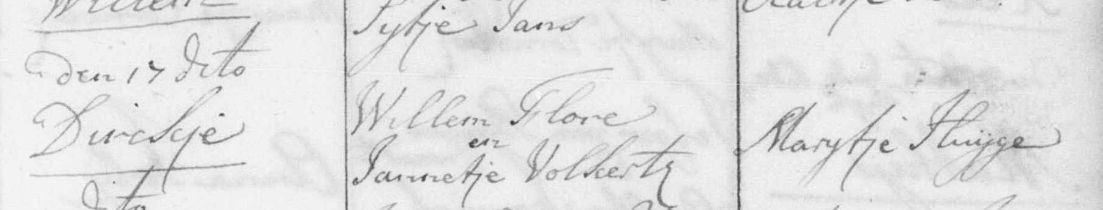 Willem
Sytje Jans
den 17 dito
Dirckje
Willem Flore
en
Jannetje Volkertz
Marytje Huijge
dito